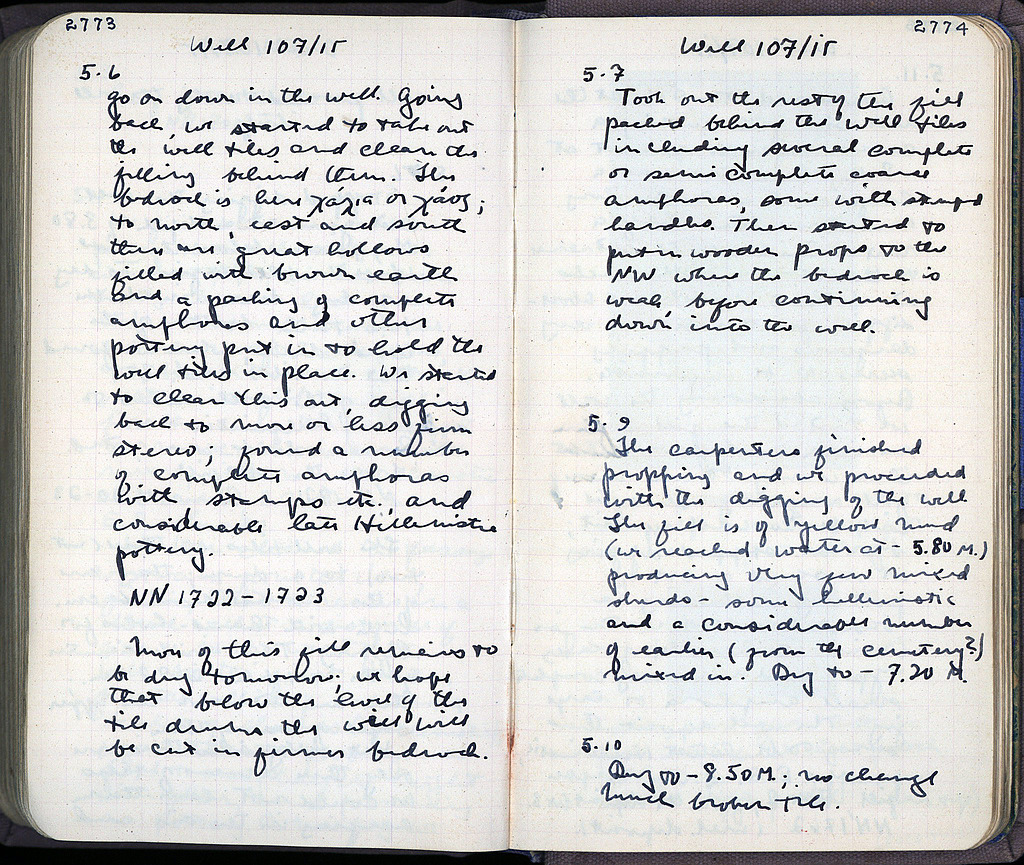 2773
Well 107/15
5.6
go on down in the well. Going
back, we started to take out
the well tiles and clean the
filling behind them. The
bedrock is here χάλια or χάος;
to north, east and south
there are great hollows
filled with brown earth
and a packing of complete
amphoras and other
pottery put in to hold the
well tiles in place. We started
to clean this out, digging
back to more or less firm
stereo; found a number
of complete amphoras
with stamps etc., and
considerable late Hellenistic
pottery.
NN 1722-1723
More of this fill remains to
be dug tomorrow; we hope
that below the level of the
tile drums the well will
be cut in firmer bedrock.
2774
Well 107/15
5.7
Took out the rest of the fill
packed behind the well tiles
including several complete
or semicomplete coarse
amphoras, some with stamped
handles. Then started to
put in wooden props to the
NW where the bedrock is
weak, before continuing
down into the well.
5.9
The carpenters finished
propping and we proceeded
with the digging of the well
The fill is of yellow mud
(we reached water at - 5.80 M.)
producing very few mixed
sherds - some hellenistic
and a considerable number
of earlier (from the cemetery?)
mixed in. Dug to - 7.20 M.
5.10
Dug to - 8.50 M; no change
much broken tile.